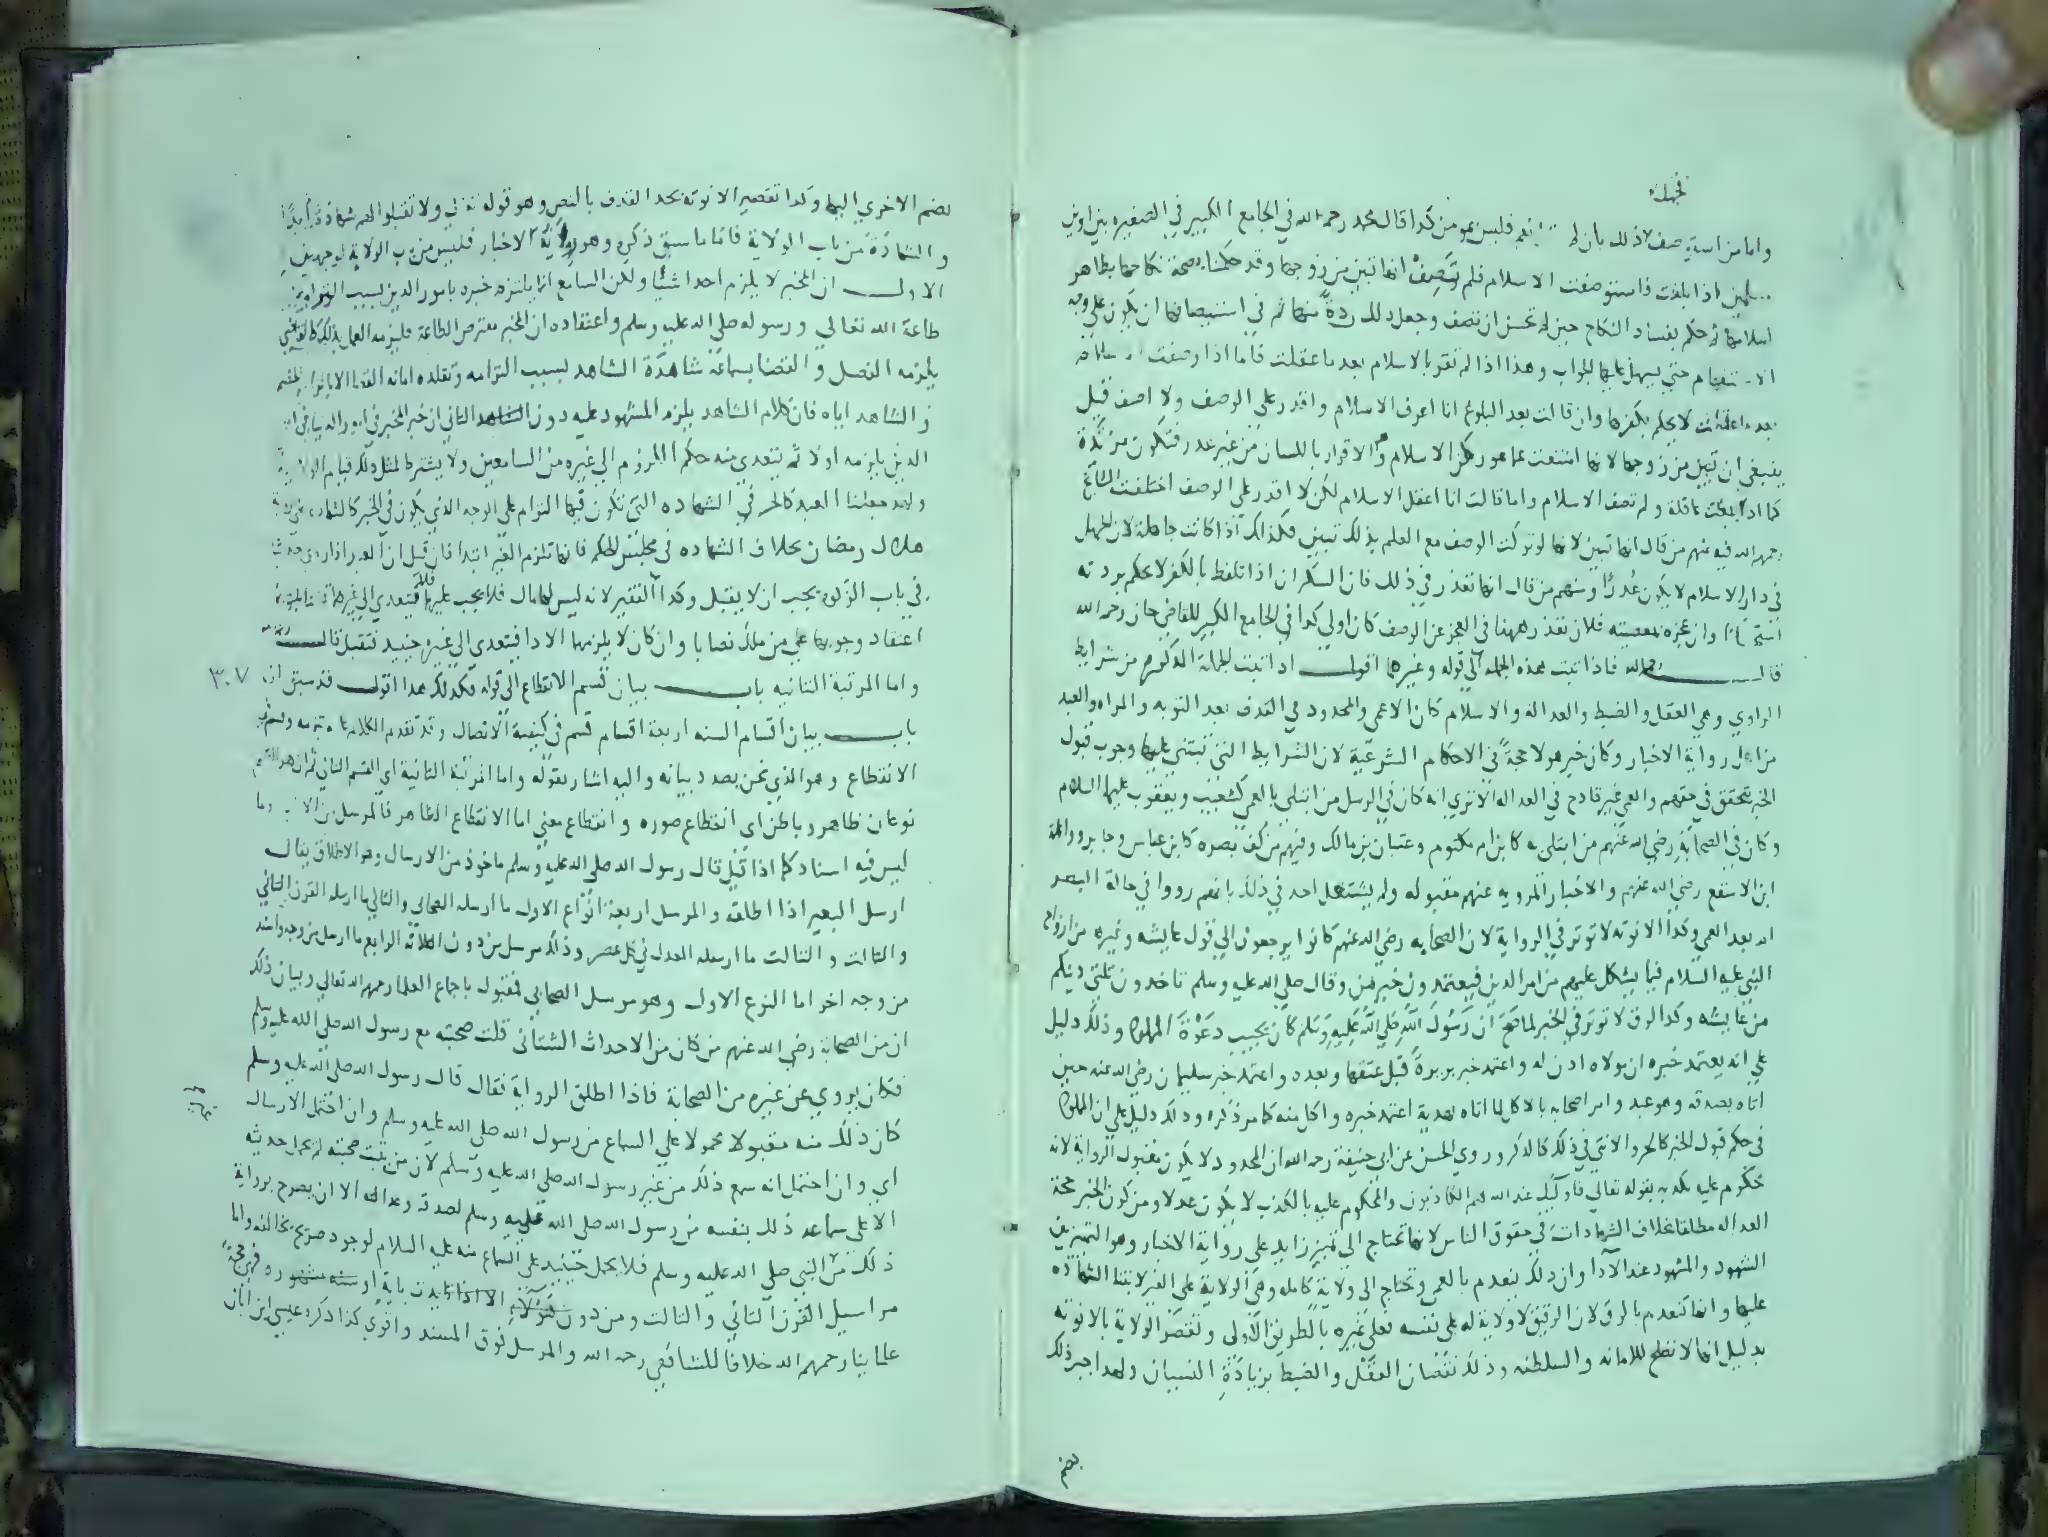 واما من استوصف لذلك بان له نعم فليس بمومن كذا قال محمد رحمه الله في الجامع الكبير في الصغيره بين ابوين
اذا بلغت فاستوصفت الاسلام فلم تصف انها تبين من زوجها وقد حكمنا بصحة نكاحها بظاهر
اسلامها ثم حكم بفساد النكاح حين لم تحسن ان تصف وجعل ذلك ردة منها ثم في استيصافها ان يكون على وجه
الاستفهام حتى يسهل عليها الجواب وهذا اذا لم تقر بالاسلام بعد ما عقلت فاما اذا وصفت
لا يحكم بكفرها وان قالت بعد البلوغ انا اعرف الاسلام واقدر على الوصف ولا اصف قبل
ينبغي ان تبين من زوجها لانها امتنعت عما هو ركن الاسلام وهو الاقرار باللسان من غير عذر فتكون مرتدة
كما اذا بلغت عاقلة ولم تصف الاسلام واما قالت انا اعقل الاسلام لكن لا اقدر على الوصف اختلفت المشايخ
رحمهم الله فيه منهم من قال انها تبين لانها لو تركت الوصف مع العلم بذلك تبين فكذلك اذا كانت جاهلة لان الجهل
في دار الاسلام لا يكون عذرا ومنهم من قال انها تعذر في ذلك فان السكران اذا تلفظ بالكفر لا يحكم بردته
وان عجزه بمعصيته فلان تعذر ههنا في العجز عن الوصف كان اولي كذا في الجامع الكبير للقاضي خان رحمه الله
قال رحمه الله فاذا ثبتت هذه الجمله الي قوله وغيرها اقول اذا ثبتت الجملة المذكوره من شرايط
الراوي وهي العقل والضبط والعداله والاسلام كان الاعمي والمحدود في القذف بعد التوبه والمراه والعبد
من اهل رواية الاخبار وكان خبر هولا حجة في الاحكام الشرعية لان الشرايط التي تبتني عليها وجوب قبول
الخبر يتحقق في حقهم والعمي غير قادح في العداله الا تري انه كان في الرسل من ابتلي بالعمي كشعيب ويعقوب عليهما السلام
وكان في الصحابة رضي الله عنهم من ابتلي به كابن ام مكتوم وعتبان بن مالك وفيهم من كف بصره كابن عباس وجابر وواثلة
ابن الاسقع رضي الله عنهم والاخبار المرويه عنهم مقبوله ولم يشتغل احد في ذلك بانهم رووا في حالة البصر
ام بعد العمي وكذا الانوثه لا توثر في الرواية لان الصحابه رضي الله عنهم كانوا يرجعون الي قول عايشه وغيره من ازواج
النبي عليه السلام فيما يشكل عليهم من امر الدين فيعتمدون خبرهن وقال صلي الله عليه وسلم تاخذون ثلثي دينكم
من عايشه وكذا الرق لا توثر في الخبر لما صح ان رسول الله صلي الله عليه وسلم كان يجيب دعوة المملوك وذلك دليل
علي انه يعتمد خبره ان مولاه اذن له واعتمد خبر بريرة قبل عتقها وبعده واعتمد خبر سليمان رضي الله عنه حين
اتاه بصدقه وهو عبد وامر اصحابه بالاكل لما اتاه بهدية اعتمد خبره واكل منه كما مر ذكره وذلك دليل علي ان المملوك
في حكم قبول الخبر كالحر والانثي في ذلك كالذكر وروي الحسن عن ابي حنيفة رحمه الله ان المحدود لا يكون مقبول الرواية لانه
محكوم عليه بكذبه بقوله تعالي فاوليك عند الله هم الكاذبون والمحكوم عليه بالكذب لا يكون عدلا ومن كون الخبر حجة
العداله مطلقا بخلاف الشهادات في حقوق الناس لانها تحتاج الي تمييز زايد علي رواية الاخبار وهو التمييز بين
الشهود والمشهود عند الادا وان ذلك ينعدم بالعمي وتحتاج الي ولاية كامله وهي الولاية علي الغير لابتنا الشهاده
عليها وانها تنعدم بالرق لان الرقيق لا ولاية له علي نفسه فعلي غيره بالطريق الاولي وتقتصر الولاية بالانوثه
بدليل انها لا تصلح للامامه والسلطنه وذلك نقصان العقل والضبط بزيادة النسيان ولهذا جبر ذلك
بضم
بضم الاخري اليها وكذا تقصير الانوثه بحد القذف بالنص وهو قوله تعالي ولا تقبلوا لهم شهادة ابدا
والشهادة من باب الولاية فاما ما سبق ذكره وهو رواية الاخبار فليس من باب الولاية لوجهين
الاول ان المخبر لا يلزم احدا شيئا ولكن السامع انما يلتزمه خبره بامور الدين بسبب التزامه
طاعة الله تعالي ورسوله صلي الله عليه وسلم واعتقاده ان المخبر مفترض الطاعة فيلزمه العمل بذلك كالقاضي
يلزمه الفصل والقضا بسماعه شهادة الشاهد بسبب التزامه وتقلده امانه القضا لا بالزام الخصم
والشاهد اياه فان كلام الشاهد يلزم المشهود عليه دون الشاهد الثاني ان خبر المخبر في امور الدين
الدين يلزمه اولا ثم يتعدي منه حكم اللزوم الي غيره من السامعين ولا يشترط لمثل ذلك قيام الولاية
ولهذا جعلنا العبد كالحر في الشهاده التي تكون فيها التزام علي الوجه الذي يكون في الخبر كالشهاده علي روية
هلال رمضان بخلاف الشهاده في مجلس الحكم فانها تلزم الغير ابتدا فان قيل ان العبد اذا روي حديثا
في باب الزكوة يجب ان لا يقبل وكذا الفقير لانه ليس لهما مال فلا يجب عليهما فيتعدي الي غيرهما قلنا
اعتقاد وجوبهما علي من ملك نصابا وان كان لا يلزمهما الادا فيتعدي الي غيرهما حينيذ فتقبل قال رحمه الله
واما المرتبة الثانيه باب بيان قسم الانقطاع الي قوله فكذلك هذا اقول قد سبق ان
باب بيان اقسام السنه اربعة اقسام قسم في كيفية الاتصال وقد تقدم الكلام وقسم في
الانقطاع وهو الذي نحن بصدد بيانه واليه اشار بقوله واما المرتبة الثانية اي القسم الثاني ثم ان هذا القسم
نوعان ظاهر وباطن اي انقطاع صوره وانقطاع معني اما الانقطاع الظاهر فالمرسل من الاخبار وما
ليس فيه اسناد كما اذا قيل قال رسول الله صلي الله عليه وسلم ماخوذ من الارسال وهو الاطلاق يقال
ارسل البعير اذا اطلقه والمرسل اربعة انواع الاول ما ارسله الصحابي والثاني ما ارسله القرن الثاني
والثالث والثالث ما ارسله العدل في كل عصر وذلك مرسل من دون الثلاثه الرابع ما ارسل من وجه واسند
من وجه اخر اما النوع الاول وهو مرسل الصحابي فمقبول باجماع العلما رحمهم الله تعالي وبيان ذلك
ان من الصحابة رضي الله عنهم من كان من الاحداث الشتاتي قلت صحبته مع رسول الله صلي الله عليه وسلم
فكان يروي عن غيره من الصحابة فاذا اطلق الرواية فقال قال رسول الله صلي الله عليه وسلم
كان ذلك منه مقبولا محمولا علي السماع من رسول الله صلي الله عليه وسلم وان احتمل الارسال
اي وان احتمل انه سمع ذلك من غير رسول الله صلي الله عليه وسلم لان من ثبتت صحبته لم يحمل حديثه
الا علي سماعه ذلك بنفسه من رسول الله صلي الله عليه وسلم لصدقه وعدالته الا ان يصرح برواية
ذلك من النبي صلي الله عليه وسلم فلا يحمل حينيذ علي السماع منه عليه السلام لوجود صريح مخالفه واما
مراسيل القرن الثاني والثالث ومن دون هولاء الا اذا تايدت باية او سنه مشهوره فهي حجة
علماينا رحمهم الله خلافا للشافعي رحمه الله والمرسل فوق المسند واقوي كذا ذكره عيسي ابن ابان
٣٠٧